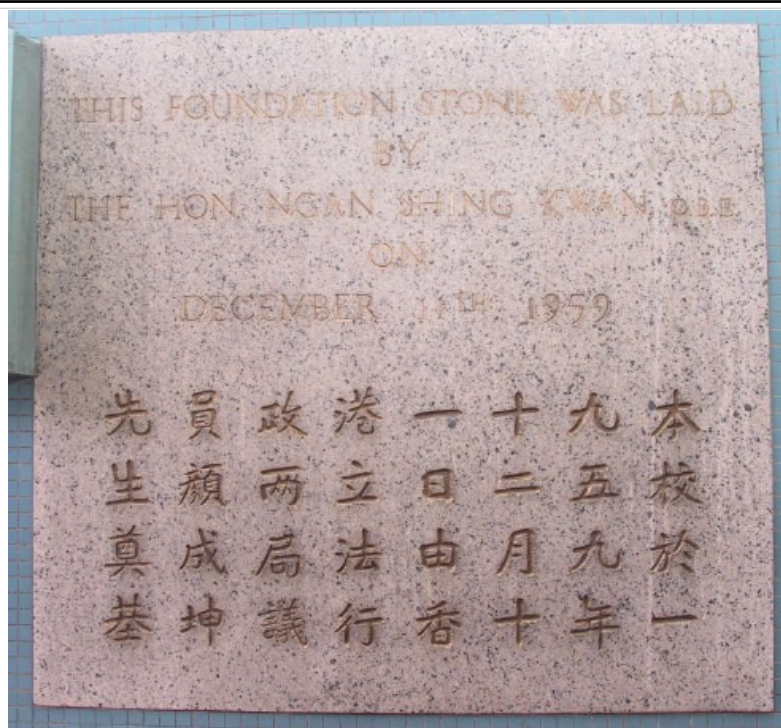 THIS FOUNDATION STONE WAS LAID
BY
THE HON. NGAN SHING KWAN, O.B.E.
ON
DECEMBER 11TH 1959
本校於一
九五九年
十二月十
一日由香
港立法行
政两局議
員顏成坤
先生奠基